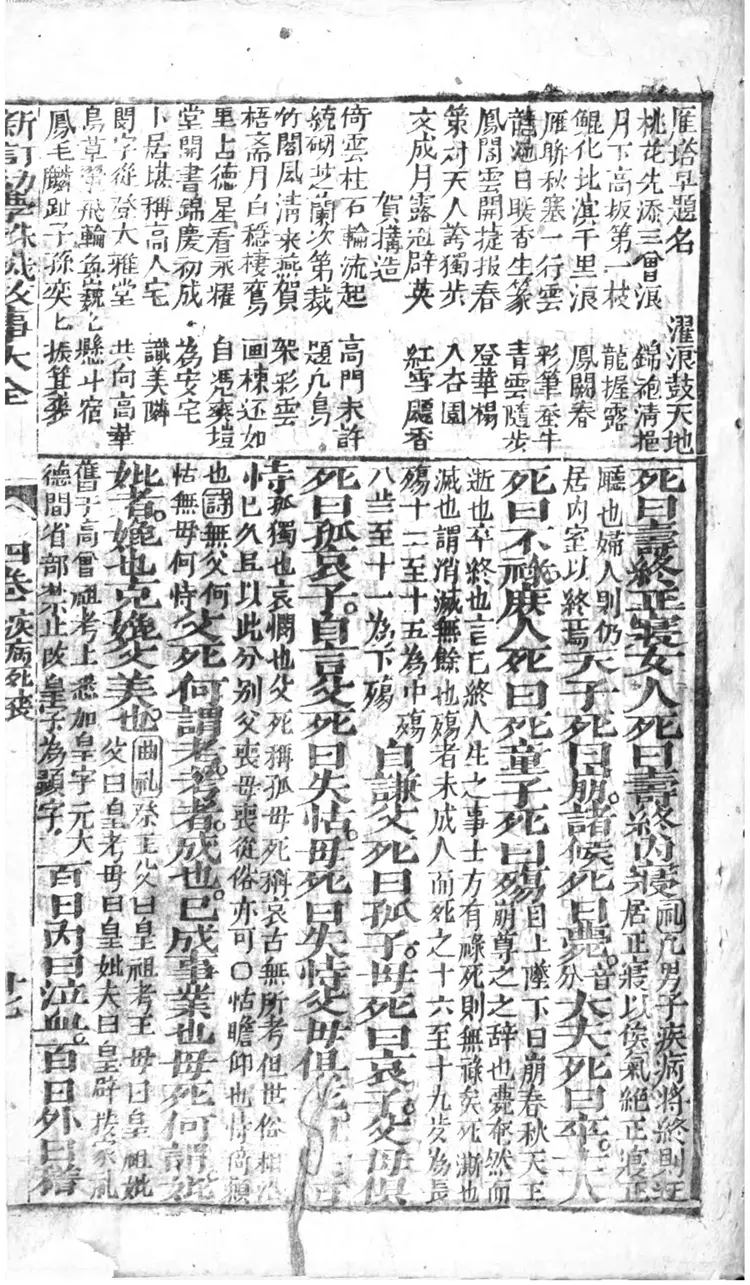 雁塔早題名　濯浪鼓天地
桃花先添三會浪　錦袍清挹
月下高扳第一枝　龍握露
鯤化北溟千里浪　鳳闕春
雁聨秋塞一行雲　彩筆奎牛
龍池日暖香生篆　青雲隨步
鳳閣雲開捷报春　登華楊
策对天人誇獨步　入杏園
文成月露冠群英　紅雪飄香
賀搆造
倚雲柱石輪流起　高門未許
統砌芝蘭次第裁　題凢鳥
竹閣風清来燕賀　架彩雲
梧斋月白穏棲鸞　画棟还如
里占德星看永耀　自凴爽塏
堂開書錦慶初成　為安宅
卜居堪稱高人宅　識美隣
閎宇從登大雅堂　共向高華
鳥草翬飛輪奐巍〻　懸斗宿
鳳毛麟趾子孫奕〻　振箕裘
死曰壽終正寢女人死曰壽終内寢礼凢男子疾病將終則迁
居正寢以俟氣絕正寢正
廳也婦人則仍
居内室以終焉天子死曰崩諸候死曰薨音分大夫死曰卒士人
死曰不祿庶人死曰死童子死曰殤自上墜下曰崩春秋天王
崩尊之之辞也薨奄然而
逝也卒終也言已終人生之事士方有祿死則無祿矣死澌也
滅也謂消滅無餘也殤者未成人而死之十六至十九步為長
殤十二至十五為中殤
八歲至十一為下殤
自謙父死曰孤子母死曰哀子父母俱
死曰孤哀子自言父死曰失怙母死曰失恃父母俱
孤獨也哀憫也父死稱孤母死稱哀古無所考但世俗相
已久且以此分别父喪母喪從俗亦可〇怙瞻仰也恃倚頼
也詩無父何
怙無母何恃
父死何謂考考者成也已成事業也母死何謂妣
妣者媲也克媲父美也曲礼祭王父曰皇祖考王母曰皇祖妣
父曰皇考母曰皇妣夫曰皇辟
舊于高曾祖考上悉加皇字元大
德間省部禁止改皇字為顯字
百日内曰泣血百日外曰稽
新訂幼學珠璣故事大全　四卷　疾病死喪　廿七